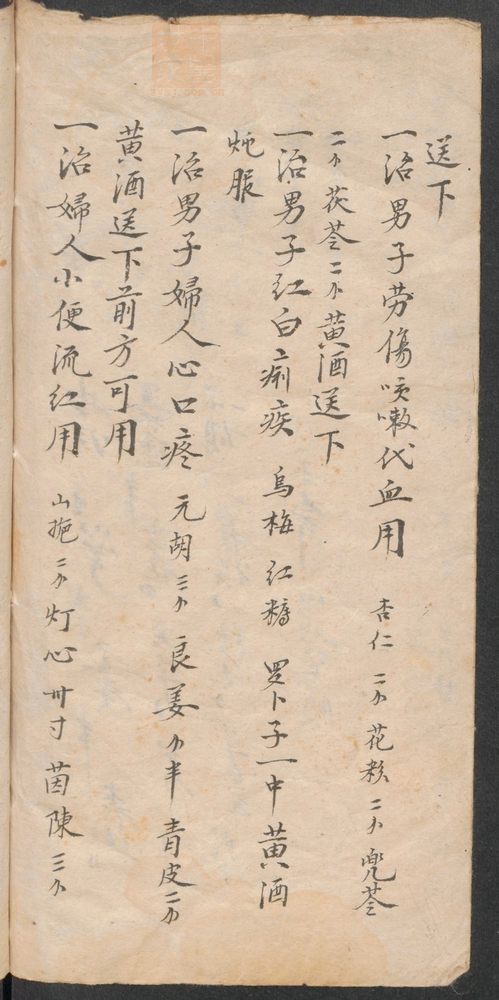 送下
一治男子劳傷咳嗽代血用 杏仁 二分 花粉 二分 兜苓
二分 茯苓 二分 黄酒送下
一治男子红白痢疾 烏梅 红糖 罗卜子一中 黄酒
炖服
一治男子婦人心口疼 元胡 三分 良姜 分半 青皮 二分
黄酒送下前方可用
一治婦人小便流红用 山栀 二分 灯心 卅寸 茵陳 三分